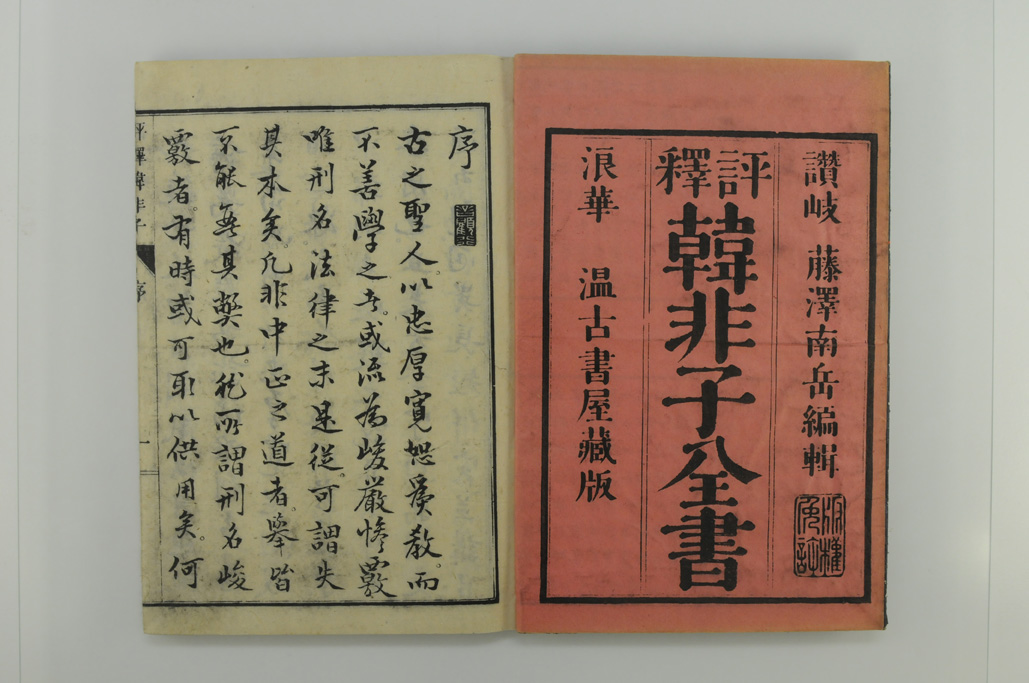 讚岐 藤澤南岳編輯
版權免許
評釋韓非子全書
浪華 温古書屋藏版
序
古之聖人。以忠厚寛恕爲教。而
不善學之者。或流為峻嚴惨覈
唯刑名法律之末是從。可謂失
其本矣。凡非中正之道者。舉皆
不能無其弊也。然所謂刑名峻
覈者。有時或可取以供用矣。何
評釋韓非子 序 一